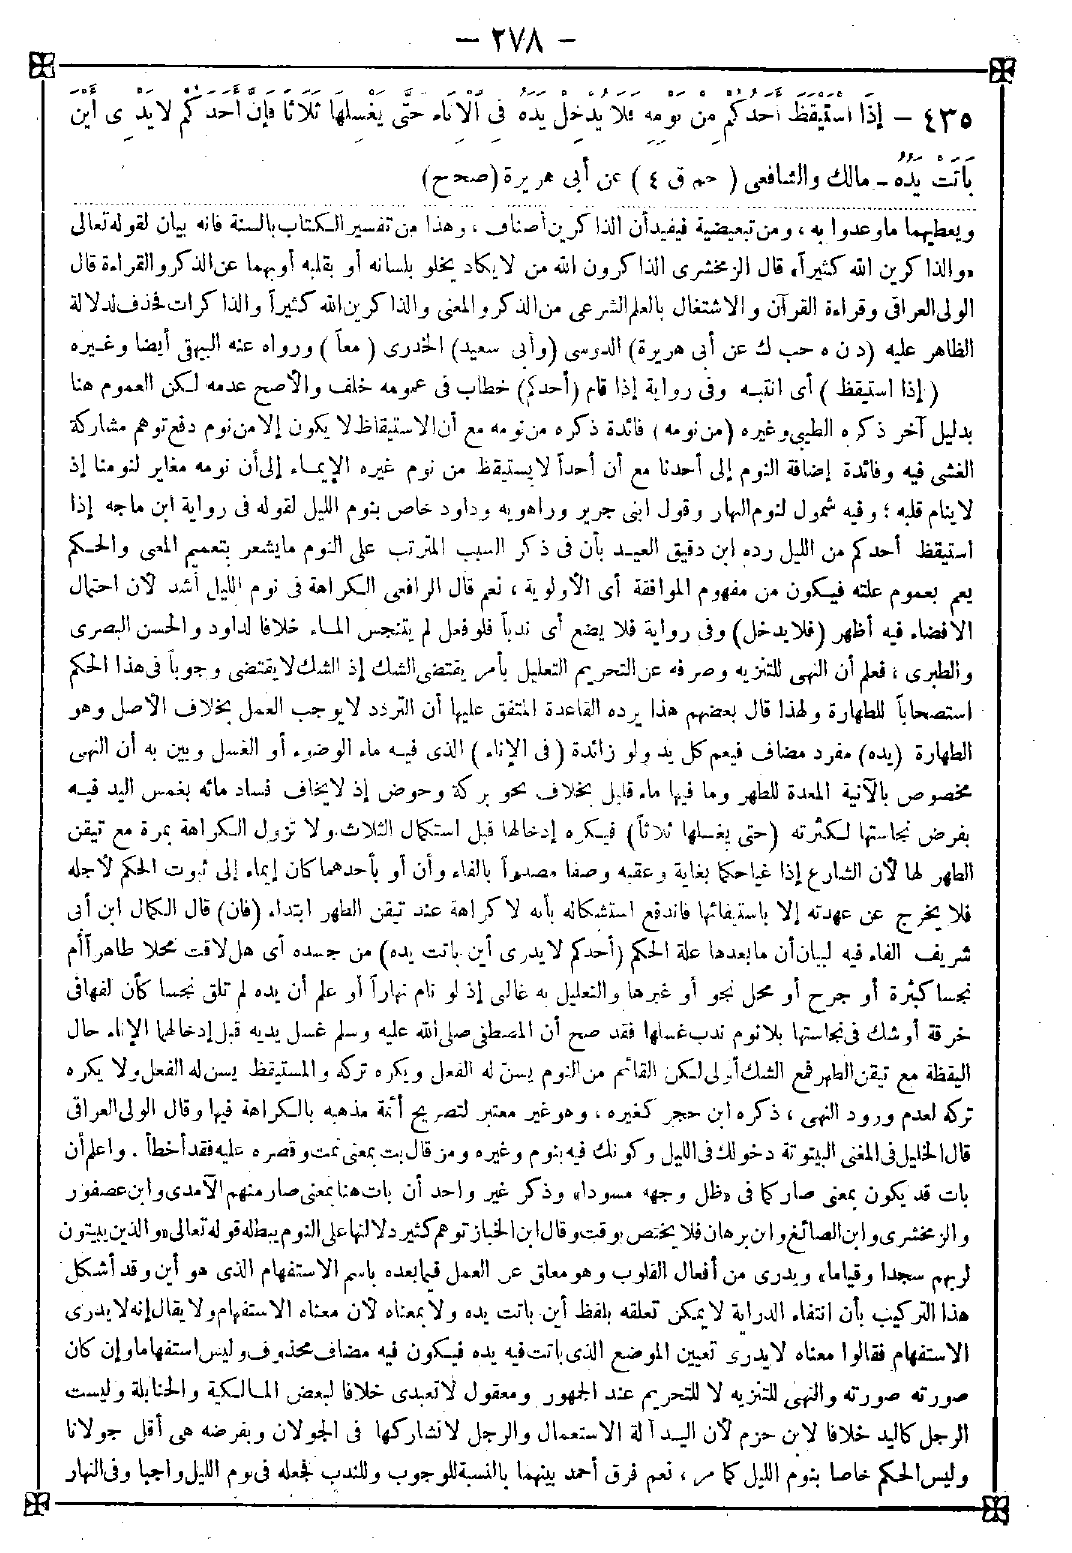 – ٢٧٨ –
٤٣٥ – إِذَا اسْتَيْقَظَ أَحَدُكُمْ مِنْ نَوْمِهِ فَلَا يُدْخِلْ يَدَهُ فِي الْإِنَاءِ حَتَّى يَغْسِلَهَا ثَلَاثًا فَإِنَّ أَحَدَكُمْ لَا يَدْرِي أَيْنَ
بَاتَتْ يَدُهُ – مالك والشافعى ( حم ق ٤ ) عن أبى هريرة (صحح)
ويعطيهما ماوعدوا به ، ومن تبعيضية فيفيد أن الذاكرين أصناف ، وهذا من تفسير الكتاب بالسنة فانه بيان لقوله تعالى
«والذاكرين الله كثيراً» قال الزمخشرى الذاكرون الله من لا يكاد يخلو بلسانه أو بقلبه أوبهما عن الذكر والقراءة قال
الولى العراقى وقراءة القرآن والاشتغال بالعلم الشرعى من الذكر والمعنى والذاكرين الله كثيراً والذاكرات فحذف لدلالة
الظاهر عليه (د ن ه حب ك عن أبى هريرة) الدوسى (وأبى سعيد) الخدرى ( معاً ) ورواه عنه البيهقى أيضا وغيره
( إذا استيقظ ) أى انتبه وفى رواية إذا قام (أحدكم) خطاب فى عمومه خلف والأصح عدمه لكن العموم هنا
بدليل آخر ذكره الطيبى وغيره (من نومه) فائدة ذكره من نومه مع أن الاستيقاظ لا يكون إلا من نوم دفع توهم مشاركة
الغشى فيه وفائدة إضافة النوم إلى أحدنا مع أن أحداً لا يستيقظ من نوم غيره الإيماء إلى أن نومه مغاير لنومنا إذ
لا ينام قلبه ؛ وفيه شمول لنوم النهار وقول ابنى جرير وراهويه وداود خاص بنوم الليل لقوله فى رواية ابن ماجه إذا
استيقظ أحدكم من الليل رده ابن دقيق العيد بأن فى ذكر السبب المترتب على النوم مايشعر بتعميم المعنى والحكم
يعم بعموم علته فيكون من مفهوم الموافقة أى الأولوية ، نعم قال الرافعى الكراهة فى نوم الليل أشد لأن احتمال
الافضاء فيه أظهر (فلا يدخل) وفى رواية فلا يضع أى ندباً فلو فعل لم يتنجس الماء خلافا لداود والحسن البصرى
والطبرى ، فعلم أن النهى للتنزيه وصرفه عن التحريم التعليل بأمر يقتضى الشك إذ الشك لا يقتضى وجوباً فى هذا الحكم
استصحاباً للطهارة ولهذا قال بعضهم هذا يرده القاعدة المتفق عليها أن التردد لا يوجب العمل بخلاف الأصل وهو
الطهارة (يده) مفرد مضاف فيعم كل يد ولو زائدة ( فى الإناء ) الذى فيه ماء الوضوء أو الغسل وبين به أن النهى
مخصوص بالآنية المعدة للطهر وما فيها ماء قليل بخلاف نحو بركة وحوض إذ لا يخاف فساد مائه بغمس اليد فيه
بفرض نجاستها لكثرته (حتى يغسلها ثلاثاً) فيكره إدخالها قبل استكمال الثلاث. ولا تزول الكراهة بمرة مع تيقن
الطهر لها لأن الشارع إذا غيا حكما بغاية وعقبه وصفا مصدراً بالفاء وأن أو بأحدهما كان إيماء إلى ثبوت الحكم لأجله
فلا يخرج عن عهدته إلا باستيفائها فاندفع استشكاله بأنه لا كراهة عند تيقن الطهر ابتداء (فان) قال الكمال ابن أبى
شريف الفاء فيه لبيان أن مابعدها علة الحكم (أحدكم لا يدرى أين باتت يده) من جسده أى هل لاقت محلا طاهراً أم
نجسا كبثرة أو جرح أو محل نجو أو غيرها والتعليل به غالى إذ لو نام نهاراً أو علم أن يده لم تلق نجسا كأن لفها فى
خرقة أو شك فى نجاستها بلا نوم ندب غسلها فقد صح أن المصطفى صلى الله عليه وسلم غسل يديه قبل إدخالهما الإناء حال
اليقظة مع تيقن الطهر فمع الشك أولى لكن القائم من النوم يسن له الفعل ويكره تركه والمستيقظ يسن له الفعل ولا يكره
تركه لعدم ورود النهى ، ذكره ابن حجر كغيره ، وهو غير معتبر لتصريح أئمة مذهبه بالكراهة فيها وقال الولى العراقى
قال الخليل فى المغنى البيتوتة دخولك فى الليل وكونك فيه بنوم وغيره ومن قال بت بمعنى نمت وقصره عليه فقد أخطأ . واعلم أن
بات قد يكون بمعنى صار كما فى «ظل وجهه مسودا» وذكر غير واحد أن بات هنا بمعنى صار منهم الآمدى وابن عصفور
والزمخشرى وابن الصائغ وابن برهان فلا يختص بوقت وقال ابن الخباز توهم كثير دلالتها على النوم يبطله قوله تعالى «والذين يبيتون
لربهم سجدا وقياما» ويدرى من أفعال القلوب وهو معلق عن العمل فيما بعده باسم الاستفهام الذى هو أين وقد أشكل
هذا التركيب بأن انتفاء الدراية لا يمكن تعلقه بلفظ أين باتت يده ولا بمعناه لأن معناه الاستفهام ولا يقال إنه لا يدرى
الاستفهام فقالوا معناه لا يدرى تعيين الموضع الذى باتت فيه يده فيكون فيه مضاف محذوف وليس استفهاما وإن كان
صورته صورته والنهى للتنزيه لا للتحريم عند الجمهور ومعقول لا تعبدى خلافا لبعض المالكية والحنابلة وليست
الرجل كاليد خلافا لابن حزم لأن اليد آلة الاستعمال والرجل لا تشاركها فى الجولان وبفرضه هى أقل جولانا
وليس الحكم خاصا بنوم الليل كما مر ، نعم فرق أحمد بينهما بالنسبة للوجوب وللندب فجعله فى نوم الليل واجبا وفى النهار